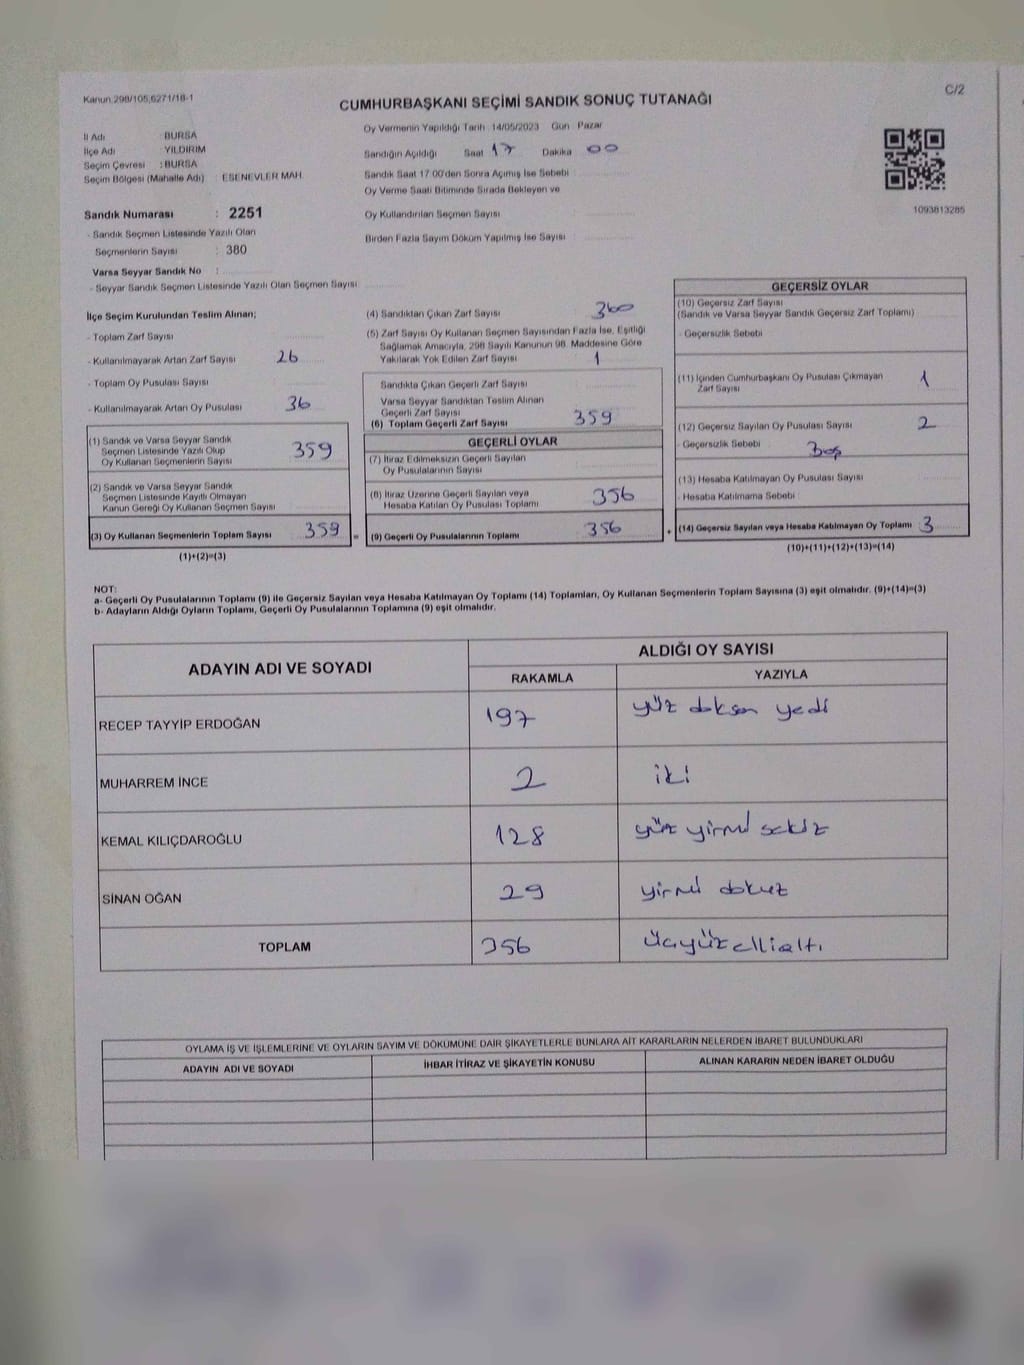 Kanun:298/105,6271/18-1
C/2
CUMHURBAŞKANI SEÇİMİ SANDIK SONUÇ TUTANAĞI
İl Adı : BURSA
İlçe Adı : YILDIRIM
Seçim Çevresi : BURSA
Seçim Bölgesi (Mahalle Adı) : ESENEVLER MAH.
Sandık Numarası : 2251
- Sandık Seçmen Listesinde Yazılı Olan
Seçmenlerin Sayısı : 380
Varsa Seyyar Sandık No :
- Seyyar Sandık Seçmen Listesinde Yazılı Olan Seçmen Sayısı
Oy Vermenin Yapıldığı Tarih 14/05/2023 Gün Pazar
Sandığın Açıldığı Saat 17 Dakika 00
Sandık Saat 17.00'den Sonra Açımış İse Sebebi
Oy Verme Saati Bitiminde Sırada Bekleyen ve
Oy Kullandırılan Seçmen Sayısı
Birden Fazla Sayım Döküm Yapılmış İse Sayısı
1093813285
İlçe Seçim Kurulundan Teslim Alınan;
- Toplam Zarf Sayısı
- Kullanılmayarak Artan Zarf Sayısı 26
- Toplam Oy Pusulası Sayısı
- Kullanılmayarak Artan Oy Pusulası 36
(1) Sandık ve Varsa Seyyar Sandık
Seçmen Listesinde Yazılı Olup
Oy Kullanan Seçmenlerin Sayısı 359
(2) Sandık ve Varsa Seyyar Sandık
Seçmen Listesinde Kayıtlı Olmayan
Kanun Gereği Oy Kullanan Seçmen Sayısı
(3) Oy Kullanan Seçmenlerin Toplam Sayısı 359 =
(1)+(2)=(3)
(4) Sandıktan Çıkan Zarf Sayısı 360
(5) Zarf Sayısı Oy Kullanan Seçmen Sayısından Fazla İse, Eşitliği
Sağlamak Amacıyla, 298 Sayılı Kanunun 98. Maddesine Göre
Yakılarak Yok Edilen Zarf Sayısı 1
Sandıkta Çıkan Geçerli Zarf Sayısı
Varsa Seyyar Sandıktan Teslim Alınan
Geçerli Zarf Sayısı
(6) Toplam Geçerli Zarf Sayısı 359
GEÇERLİ OYLAR
(7) İtiraz Edilmeksizin Geçerli Sayılan
Oy Pusulalarının Sayısı
(8) İtiraz Üzerine Geçerli Sayılan veya
Hesaba Katılan Oy Pusulası Toplamı 356
(9) Geçerli Oy Pusulalarının Toplamı 356 +
GEÇERSİZ OYLAR
(10) Geçersiz Zarf Sayısı
(Sandık ve Varsa Seyyar Sandık Geçersiz Zarf Toplamı)
- Geçersizlik Sebebi
(11) İçinden Cumhurbaşkanı Oy Pusulası Çıkmayan
Zarf Sayısı 1
(12) Geçersiz Sayılan Oy Pusulası Sayısı 2
- Geçersizlik Sebebi Boş
(13) Hesaba Katılmayan Oy Pusulası Sayısı
- Hesaba Katılmama Sebebi
(14) Geçersiz Sayılan veya Hesaba Katılmayan Oy Toplamı 3
(10)+(11)+(12)+(13)=(14)
NOT:
a- Geçerli Oy Pusulalarının Toplamı (9) ile Geçersiz Sayılan veya Hesaba Katılmayan Oy Toplamı (14) Toplamları, Oy Kullanan Seçmenlerin Toplam Sayısına (3) eşit olmalıdır. (9)+(14)=(3)
b- Adayların Aldığı Oyların Toplamı, Geçerli Oy Pusulalarının Toplamına (9) eşit olmalıdır.
ADAYIN ADI VE SOYADI
ALDIĞI OY SAYISI
RAKAMLA YAZIYLA
RECEP TAYYİP ERDOĞAN 197 yüz doksan yedi
MUHARREM İNCE 2 iki
KEMAL KILIÇDAROĞLU 128 yüz yirmi sekiz
SİNAN OĞAN 29 yirmi dokuz
TOPLAM 356 üçyüzellialtı
OYLAMA İŞ VE İŞLEMLERİNE VE OYLARIN SAYIM VE DÖKÜMÜNE DAİR ŞİKAYETLERLE BUNLARA AİT KARARLARIN NELERDEN İBARET BULUNDUKLARI
ADAYIN ADI VE SOYADI İHBAR İTİRAZ VE ŞİKAYETİN KONUSU ALINAN KARARIN NEDEN İBARET OLDUĞU